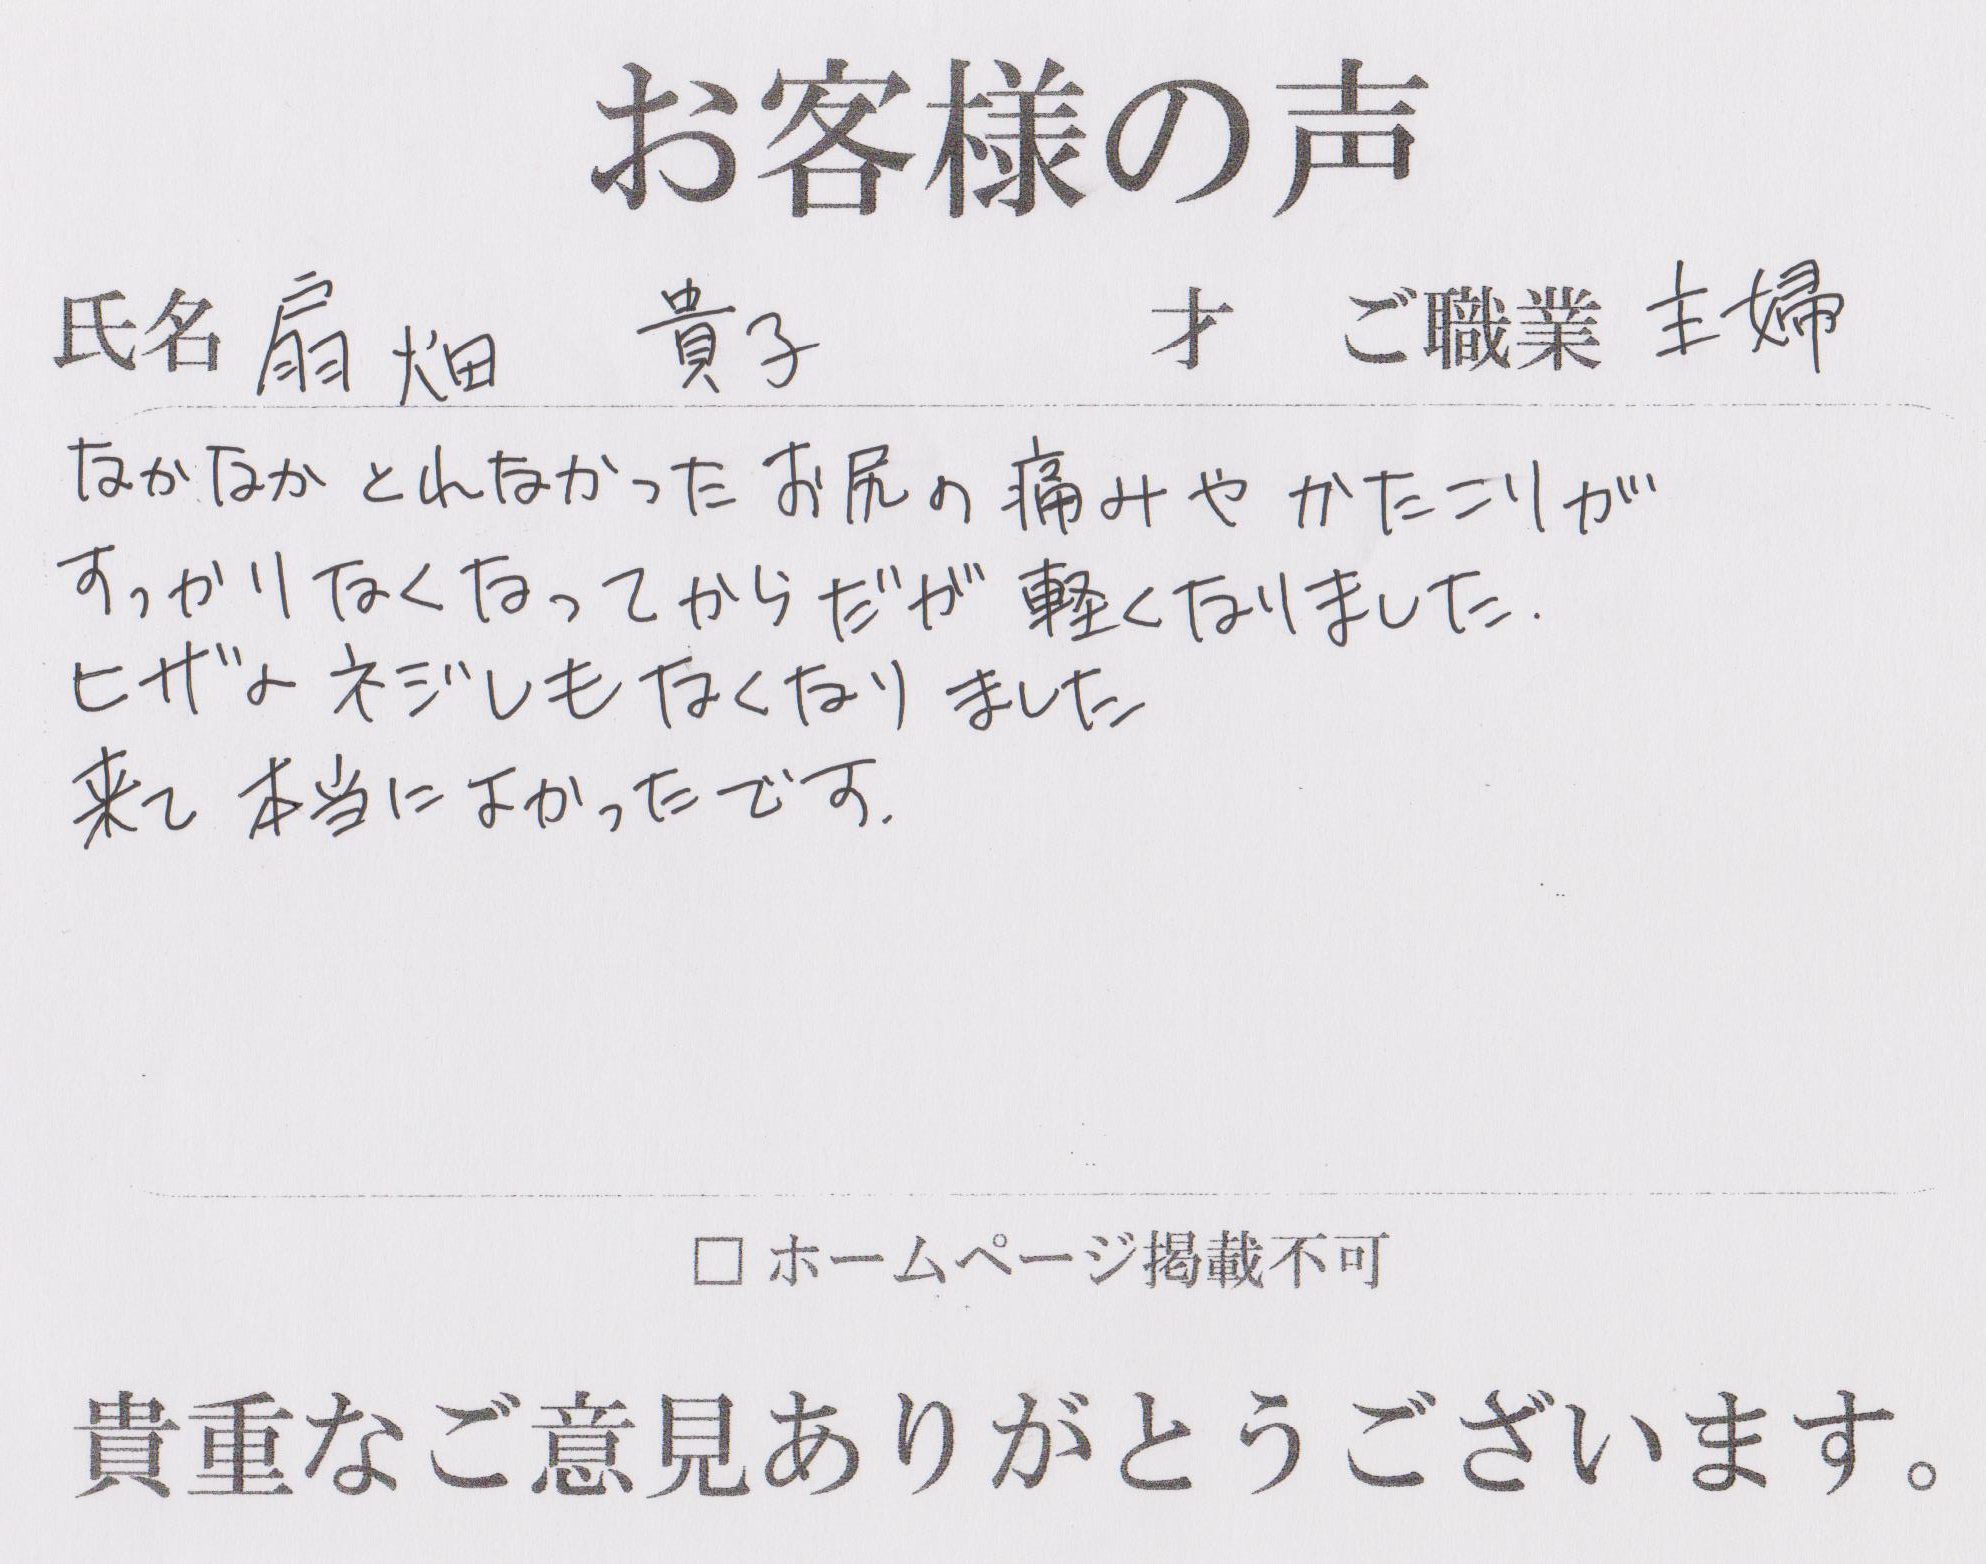 お客様の声
氏名 扇畑 貴子 才 ご職業 主婦
なかなかとれなかったお尻の痛みやかたこりが
すっかりなくなってからだが軽くなりました.
ヒザよネジしもなくなりました
来て本当によかったです.
□ ホームページ掲載不可
貴重なご意見ありがとうございます。